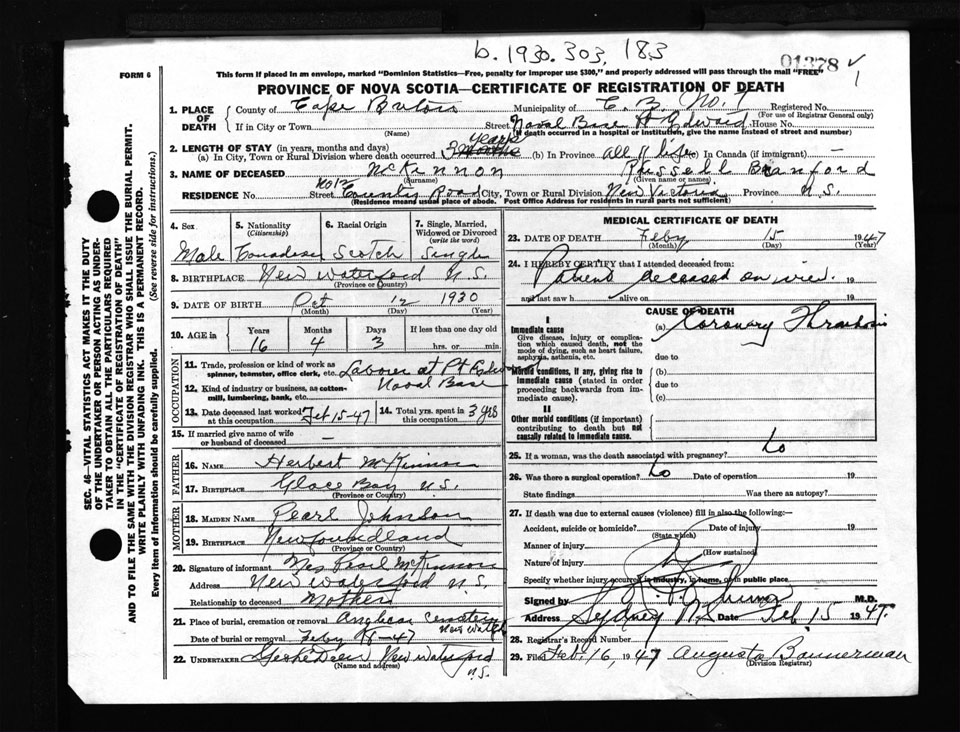 b. 1930. 303, 183
01378
1
FORM 6
This form if placed in an envelope, marked "Dominion Statistics—Free, penalty for improper use $300," and properly addressed will pass through the mail "FREE"
PROVINCE OF NOVA SCOTIA—CERTIFICATE OF REGISTRATION OF DEATH
SEC. 46—VITAL STATISTICS ACT MAKES IT THE DUTY
OF THE UNDERTAKER OR PERSON ACTING AS UNDER-
TAKER TO OBTAIN ALL THE PARTICULARS REQUIRED
IN THE "CERTIFICATE OF REGISTRATION OF DEATH"
AND TO FILE THE SAME WITH THE DIVISION REGISTRAR WHO SHALL ISSUE THE BURIAL PERMIT.
WRITE PLAINLY WITH UNFADING INK. THIS IS A PERMANENT RECORD.
Every item of information should be carefully supplied. (See reverse side for instructions.)
1. PLACE OF DEATH
County of Cape Breton Municipality of C. B. No. 1 Registered No.
(For use of Registrar General only)
If in City or Town (Name) Street Naval Base Pt Edward House No.
(If death occurred in a hospital or institution, give the name instead of street and number)
2. LENGTH OF STAY (in years, months and days)
(a) In City, Town or Rural Division where death occurred 3 months years (b) In Province all of life (c) In Canada (if immigrant) —
3. NAME OF DECEASED McKinnon Russell Branford
(Surname) (Given name or names)
RESIDENCE No Street Road City, Town or Rural Division New Victoria Province N.S.
(Residence means usual place of abode. Post Office Address for residents in rural parts not sufficient)
4. Sex 5. Nationality (Citizenship) 6. Racial Origin 7. Single, Married, Widowed or Divorced (write the word)
Male Canadian Scotch Single
8. BIRTHPLACE New Waterford N.S.
(Province or Country)
9. DATE OF BIRTH Oct 12 1930
(Month) (Day) (Year)
10. AGE in Years Months Days If less than one day old
16 4 3 hrs. or min.
OCCUPATION
11. Trade, profession or kind of work as spinner, teamster, office clerk, etc. Labour at Pt Edward
12. Kind of industry or business, as cotton-mill, lumbering, bank, etc. Naval Base
13. Date deceased last worked at this occupation Feb 15-47 14. Total yrs. spent in this occupation 3 yrs
15. If married give name of wife or husband of deceased —
FATHER
16. NAME Herbert McKinnon
17. BIRTHPLACE Glace Bay N.S.
(Province or Country)
MOTHER
18. MAIDEN NAME Pearl Johnson
19. BIRTHPLACE Newfoundland
(Province or Country)
20. Signature of informant Mrs Pearl McKinnon
Address New Waterford N.S.
Relationship to deceased Mother
21. Place of burial, cremation or removal Anglican Cemetery New Waterford
Date of burial or removal Feby -47
22. UNDERTAKER New Waterford N.S.
(Name and address)
MEDICAL CERTIFICATE OF DEATH
23. DATE OF DEATH Feby 15 1947
(Month) (Day) (Year)
24. I HEREBY CERTIFY that I attended deceased from:
Patient deceased on 19
and last saw h alive on 19
CAUSE OF DEATH
I
Immediate cause
Give disease, injury or complication which caused death, not the mode of dying, such as heart failure, asphyxia, asthenia, etc.
(a) Coronary Thrombosis
due to
Morbid conditions, if any, giving rise to immediate cause (stated in order proceeding backwards from immediate cause).
(b)
due to
(c)
II
Other morbid conditions (if important) contributing to death but not causally related to immediate cause.
25. If a woman, was the death associated with pregnancy?
26. Was there a surgical operation? Date of operation 19
State findings Was there an autopsy?
27. If death was due to external causes (violence) fill in also the following:—
Accident, suicide or homicide? Date of injury 19
(State which)
Manner of injury
(How sustained)
Nature of injury
Specify whether injury occurred in industry, in home, or in public place
Signed by M.D.
Address Sydney N.S. Date Feb 15 1947.
28. Registrar's Record Number
29. Filed Feb. 16, 1947 Augusta Bannerman
(Division Registrar)